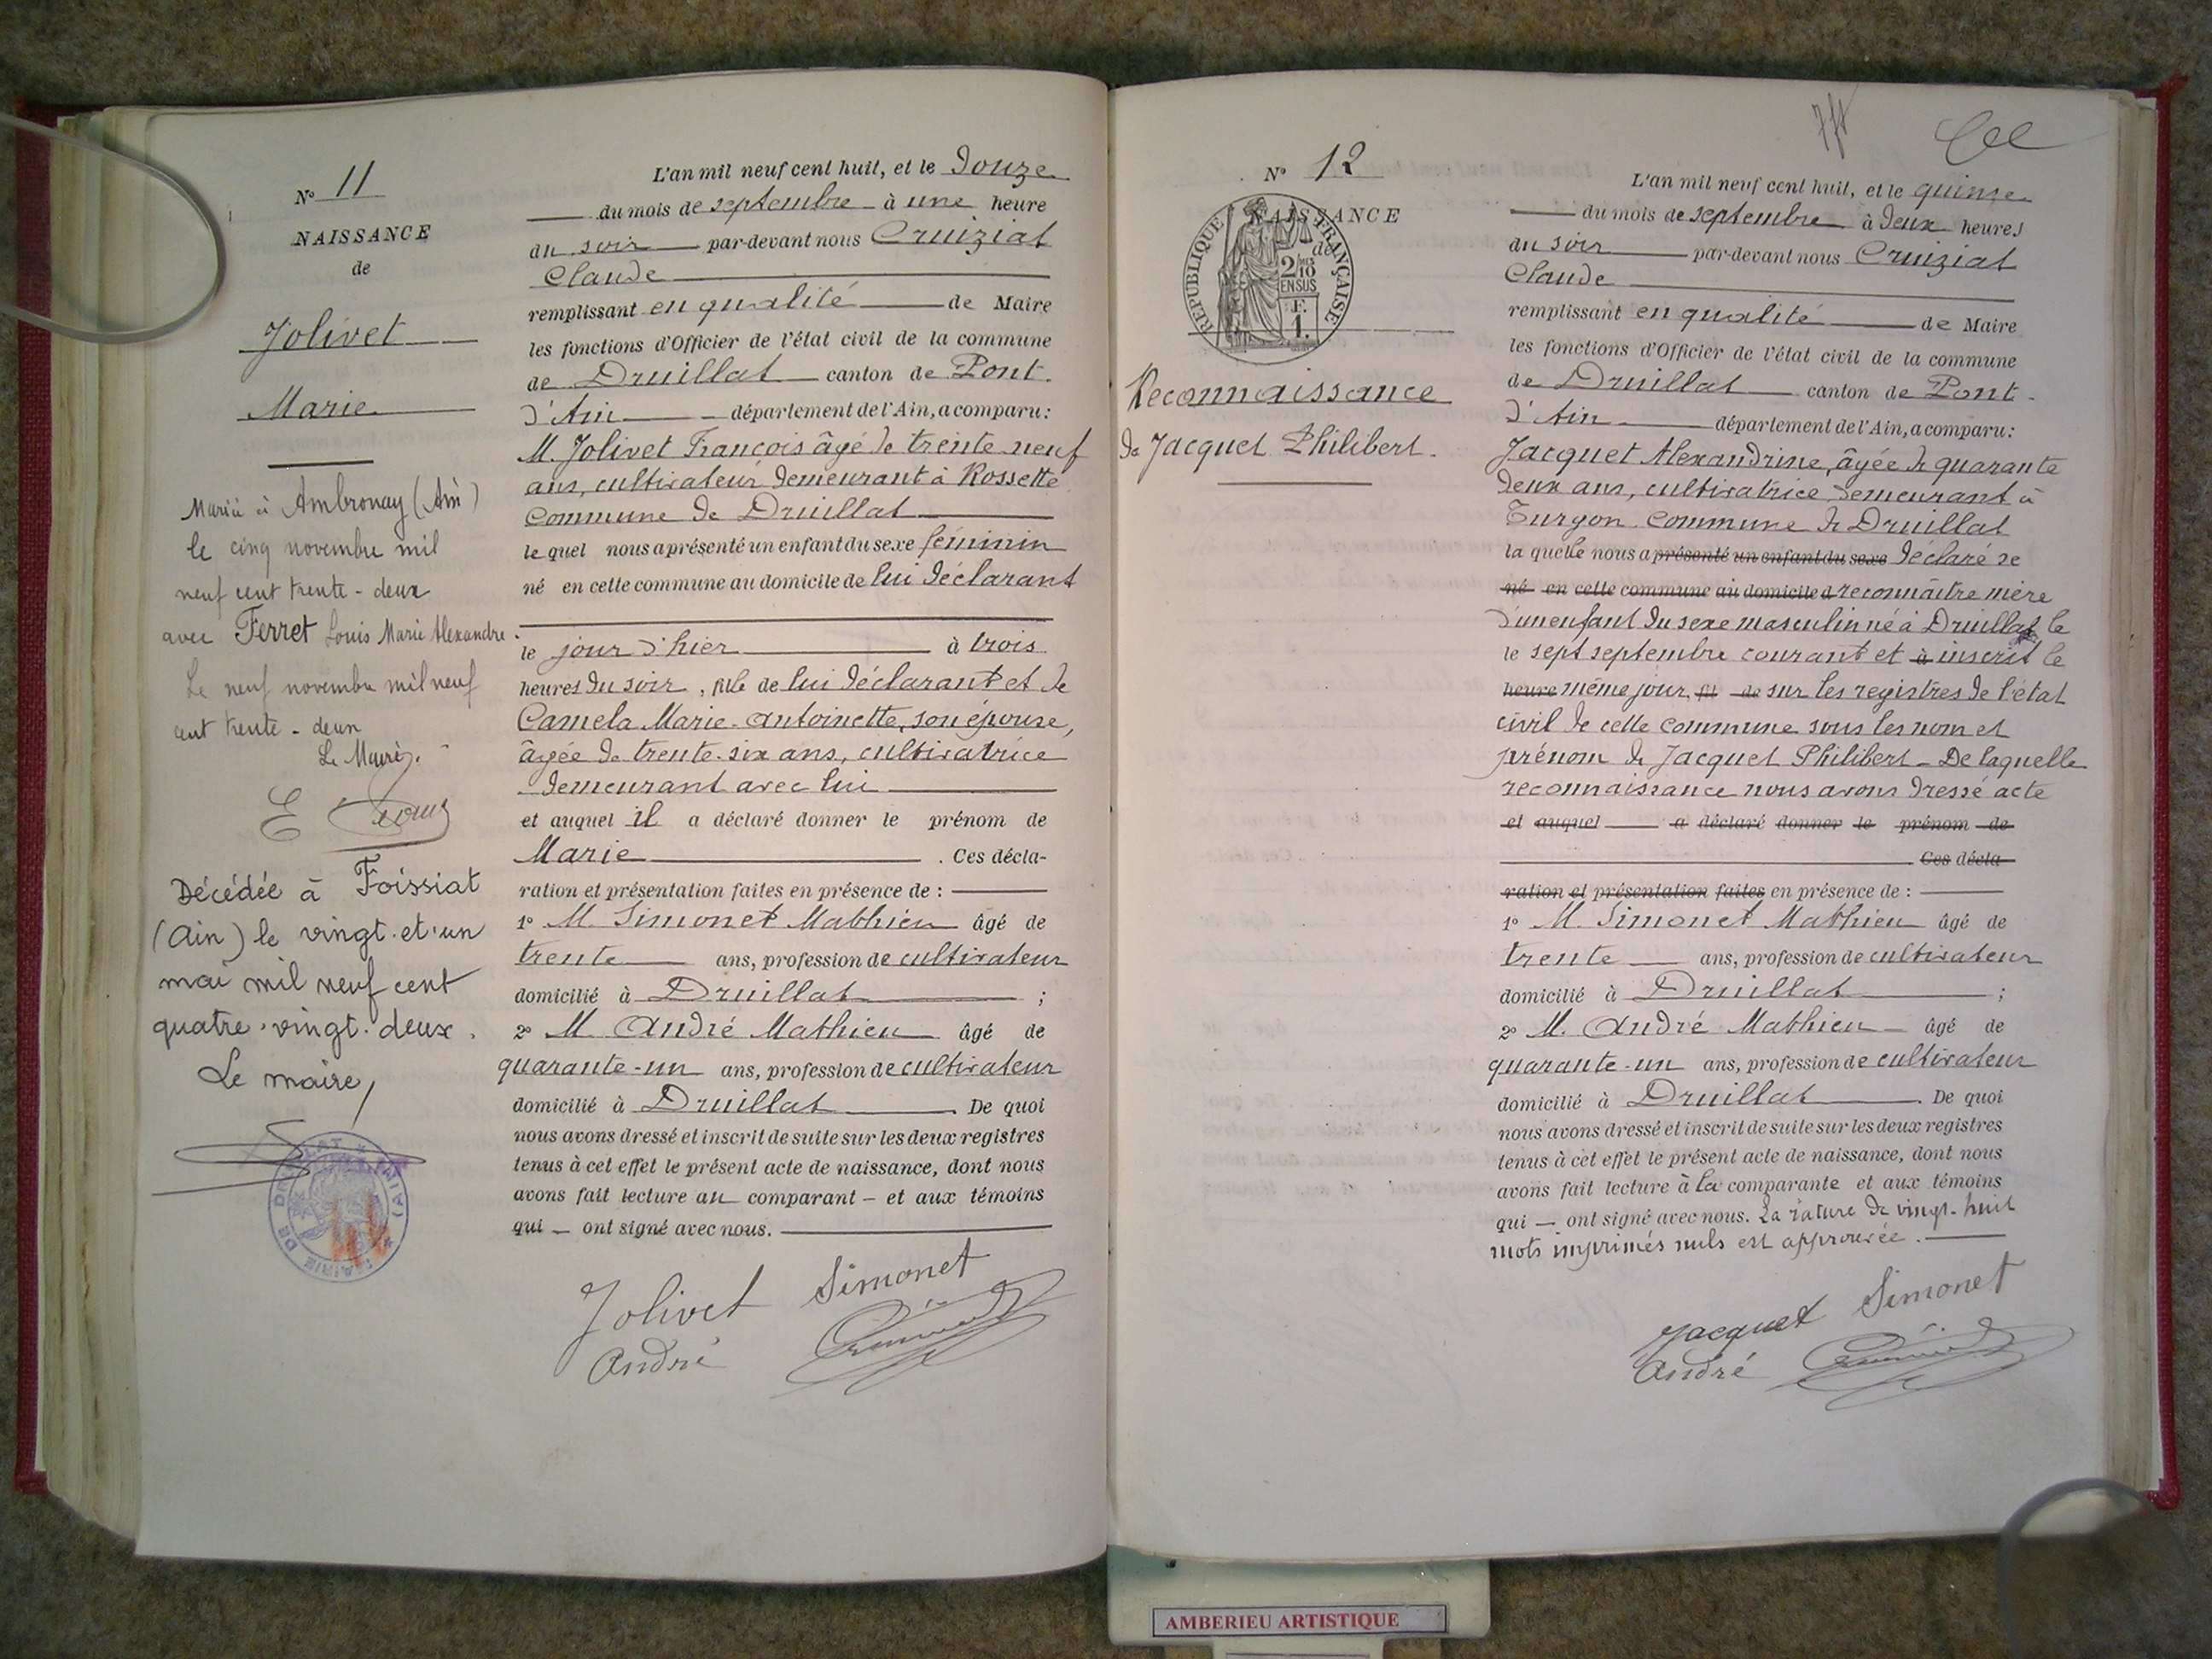 N° 11
NAISSANCE
de
Jolivet
Marie
Mariée à Ambronay (Ain)
le cinq novembre mil
neuf cent trente-deux
avec Ferret Louis Marie Alexandre.
Le neuf novembre mil neuf
cent trente-deux
Le Maire.
Décédée à Foissiat
(Ain) le vingt-et-un
mai mil neuf cent
quatre-vingt-deux.
Le maire,
L'an mil neuf cent huit, et le douze
du mois de septembre à une heure
du soir par-devant nous Cruiziat
Claude
remplissant en qualité de Maire
les fonctions d'Officier de l'état civil de la commune
de Druillat canton de Pont-
d'Ain département de l'Ain, a comparu:
M. Jolivet François âgé de trente neuf
ans, cultivateur demeurant à Rossette
commune de Druillat
le quel nous a présenté un enfant du sexe féminin
né en cette commune au domicile de lui déclarant
le jour d'hier à trois
heures du soir, fille de lui déclarant et de
Camela Marie-Antoinette, son épouse,
âgée de trente-six ans, cultivatrice
demeurant avec lui
et auquel il a déclaré donner le prénom de
Marie. Ces décla-
ration et présentation faites en présence de :
1° M. Simonet Mathieu âgé de
trente ans, profession de cultivateur
domicilié à Druillat ;
2° M André Mathieu âgé de
quarante-un ans, profession de cultivateur
domicilié à Druillat. De quoi
nous avons dressé et inscrit de suite sur les deux registres
tenus à cet effet le présent acte de naissance, dont nous
avons fait lecture au comparant – et aux témoins
qui – ont signé avec nous.
Jolivet Simonet
André
N° 12
NAISSANCE
de
RÉPUBLIQUE FRANÇAISE
Reconnaissance
de Jacquet Philibert.
L'an mil neuf cent huit, et le quinze
du mois de septembre à deux heures
du soir par-devant nous Cruiziat
Claude
remplissant en qualité de Maire
les fonctions d'Officier de l'état civil de la commune
de Druillat canton de Pont-
d'Ain département de l'Ain, a comparu:
Jacquet Alexandrine, âgée de quarante
deux ans, cultivatrice demeurant à
Turgon commune de Druillat
la quelle nous a présenté un enfant du sexe déclaré se
né en cette commune au domicile d reconnaître mère
d'un enfant du sexe masculin né à Druillat le
le sept septembre courant et à inscrit le
heure même jour, fil de sur les registres de l'état
civil de cette commune sous les nom et
prénom de Jacquet Philibert – De laquelle
reconnaissance nous avons dressé acte
et auquel a déclaré donner le prénom de
. Ces décla-
ration et présentation faites en présence de :
1° M. Simonet Mathieu âgé de
trente ans, profession de cultivateur
domicilié à Druillat ;
2° M. André Mathieu – âgé de
quarante-un ans, profession de cultivateur
domicilié à Druillat. De quoi
nous avons dressé et inscrit de suite sur les deux registres
tenus à cet effet le présent acte de naissance, dont nous
avons fait lecture à la comparante et aux témoins
qui – ont signé avec nous. La rature de vingt-huit
mots imprimés nuls est approuvée.
Jacquet Simonet
André
AMBERIEU ARTISTIQUE